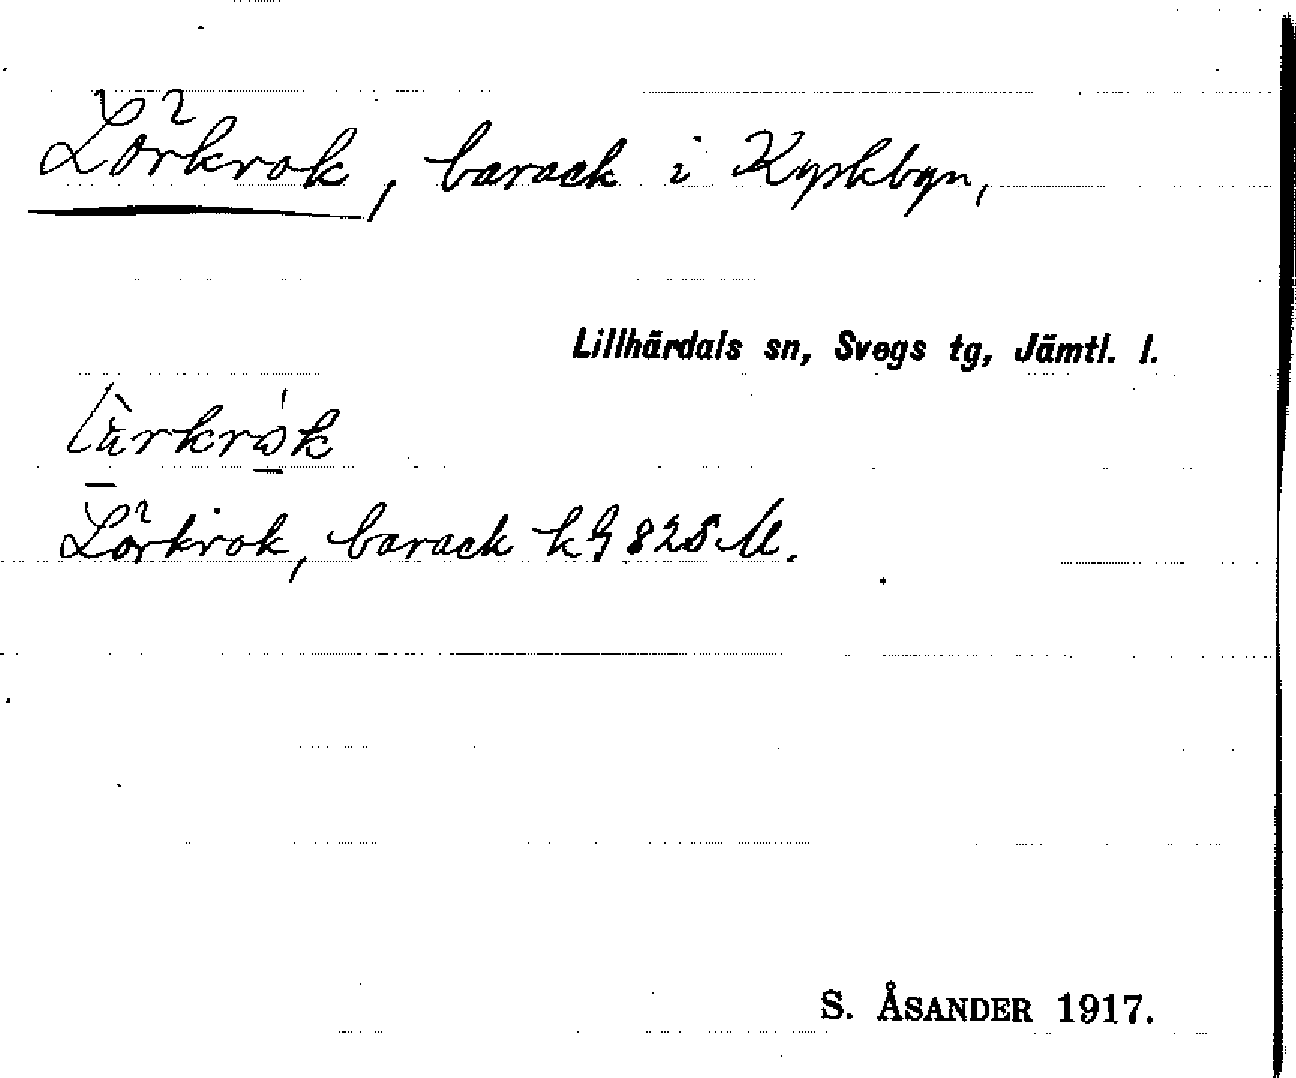 Lörkrok, barack i Kyrkbyn,
Lillhärdals sn, Svegs tg, Jämtl. l.
Lörkrok, barack k G 828 M.
S. ÅSANDER 1917.